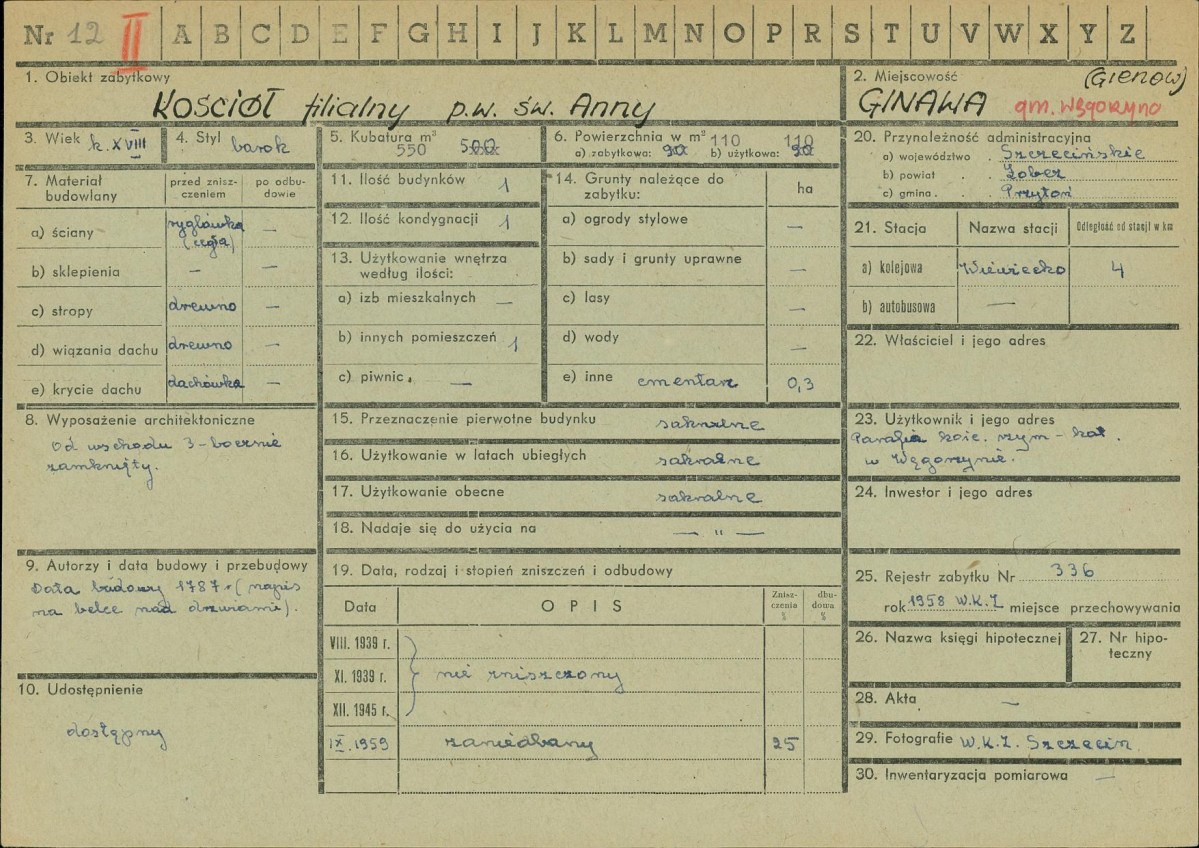 Nr 12 II A B C D E F G H I J K L M N O P R S T U V W X Y Z
1. Obiekt zabytkowy
KOŚCIÓŁ filialny p.w. św. Anny
2. Miejscowość (GIENOW)
GINAWA gm. Węgorzyno
3. Wiek k. XVIII
4. Styl barok
5. Kubatura m³
550 500
6. Powierzchnia w m² 110 110
a) zabytkowa: 90 b) użytkowa: 90
7. Materiał budowlany
przed zniszczeniem
po odbudowie
a) ściany ryglówka (cegła) —
b) sklepienia — —
c) stropy drewno —
d) wiązania dachu drewno —
e) krycie dachu dachówka —
8. Wyposażenie architektoniczne
Od wschodu 3-bocznie
zamknięty.
9. Autorzy i data budowy i przebudowy
Data budowy 1787 r (napis
na belce nad drzwiami).
10. Udostępnienie
dostępny
11. Ilość budynków 1
12. Ilość kondygnacji 1
13. Użytkowanie wnętrza
według ilości:
a) izb mieszkalnych —
b) innych pomieszczeń 1
c) piwnic —
14. Grunty należące do
zabytku:
ha
a) ogrody stylowe —
b) sady i grunty uprawne —
c) lasy —
d) wody —
e) inne cmentarz 0,3
15. Przeznaczenie pierwotne budynku sakralne
16. Użytkowanie w latach ubiegłych sakralne
17. Użytkowanie obecne sakralne
18. Nadaje się do użycia na — " —
19. Data, rodzaj i stopień zniszczeń i odbudowy
Data
OPIS
Zniszczenia %
dbudowa %
VIII. 1939 r.
XI. 1939 r. nie zniszczony
XII. 1945 r.
IX. 1959 zaniedbany 25
20. Przynależność administracyjna
a) województwo . Szczecińskie
b) powiat . Łobez
c) gmina . Przytoń
21. Stacja
Nazwa stacji
Odległość od stacji w km
a) kolejowa Wiewiecko 4
b) autobusowa —
22. Właściciel i jego adres
23. Użytkownik i jego adres
Parafia kośc. rzym-kat.
w Węgorzynie.
24. Inwestor i jego adres
25. Rejestr zabytku Nr 336
rok 1958 W.K.Z miejsce przechowywania
26. Nazwa księgi hipotecznej
27. Nr hipoteczny
28. Akta —
29. Fotografie W.K.Z. Szczecin
30. Inwentaryzacja pomiarowa —